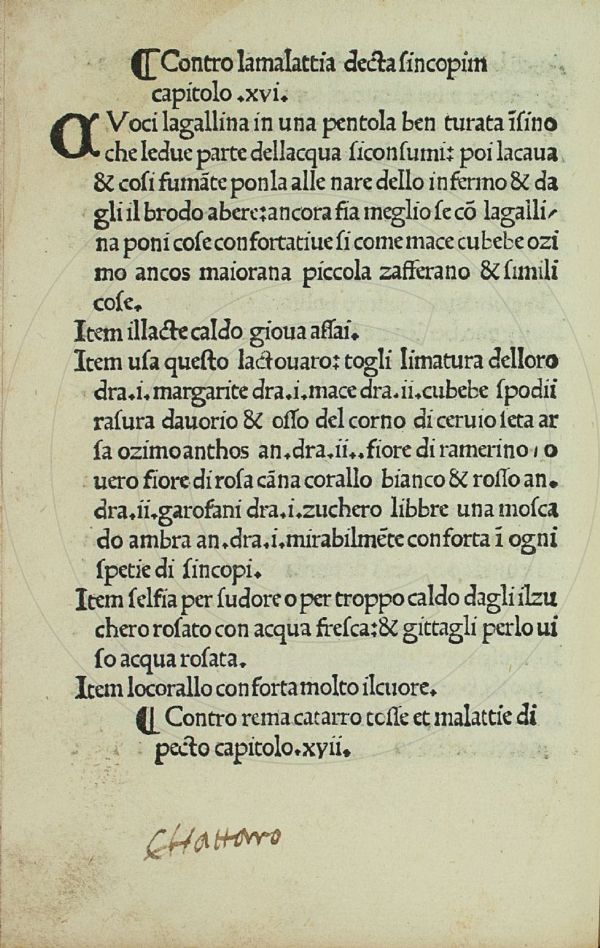 ¶ Contro lamalattia decta sincopim
capitolo .xvi.
Q Voci lagallina in una pentola ben turata īsino
che ledue parte dellacqua siconsumi: poi lacaua
& cosi fumāte ponla alle nare dello infermo & da
gli il brodo abere: ancora fia meglio se cō lagalli/
na poni cose confortatiue si come mace cubebe ozi
mo ancos maiorana piccola zafferano & simili
cose.
Item illacte caldo gioua assai.
Item usa questo lactouaro: togli limatura delloro
dra.i. margarite dra.i. mace dra.ii. cubebe spodii
rasura dauorio & osso del corno di ceruio seta ar
sa ozimo anthos an.dra.ii.. fiore di ramerino, o
uero fiore di rosa cāna corallo bianco & rosso an.
dra.ii. garofani dra.i. zuchero libbre una mosca
do ambra an.dra.i. mirabilmēte conforta ī ogni
spetie di sincopi.
Item selfia per sudore o per troppo caldo dagli ilzu
chero rosato con acqua fresca: & gittagli perlo ui
so acqua rosata.
Item locorallo conforta molto ilcuore.
¶ Contro rema catarro tosse et malattie di
pecto capitolo .xvii.
CHattarro